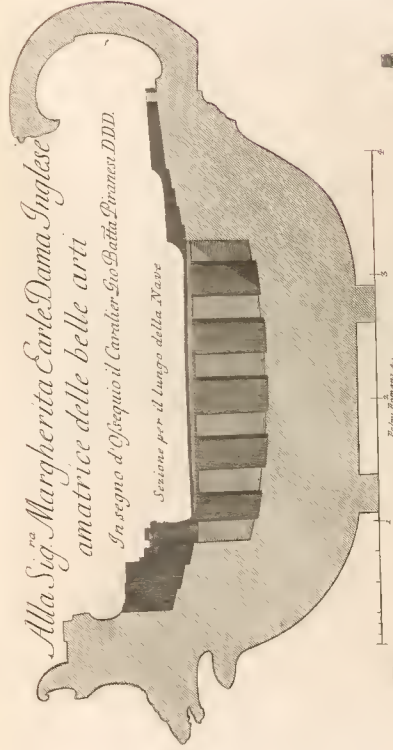 Alla Sig.ra Margherita Earle Dama Inglese
amatrice delle belle arti
In segno d'Ossequio il Cavalier Gio Batta Piranesi DDD.
Sezione per il lungo della Nave
1 2 3 4